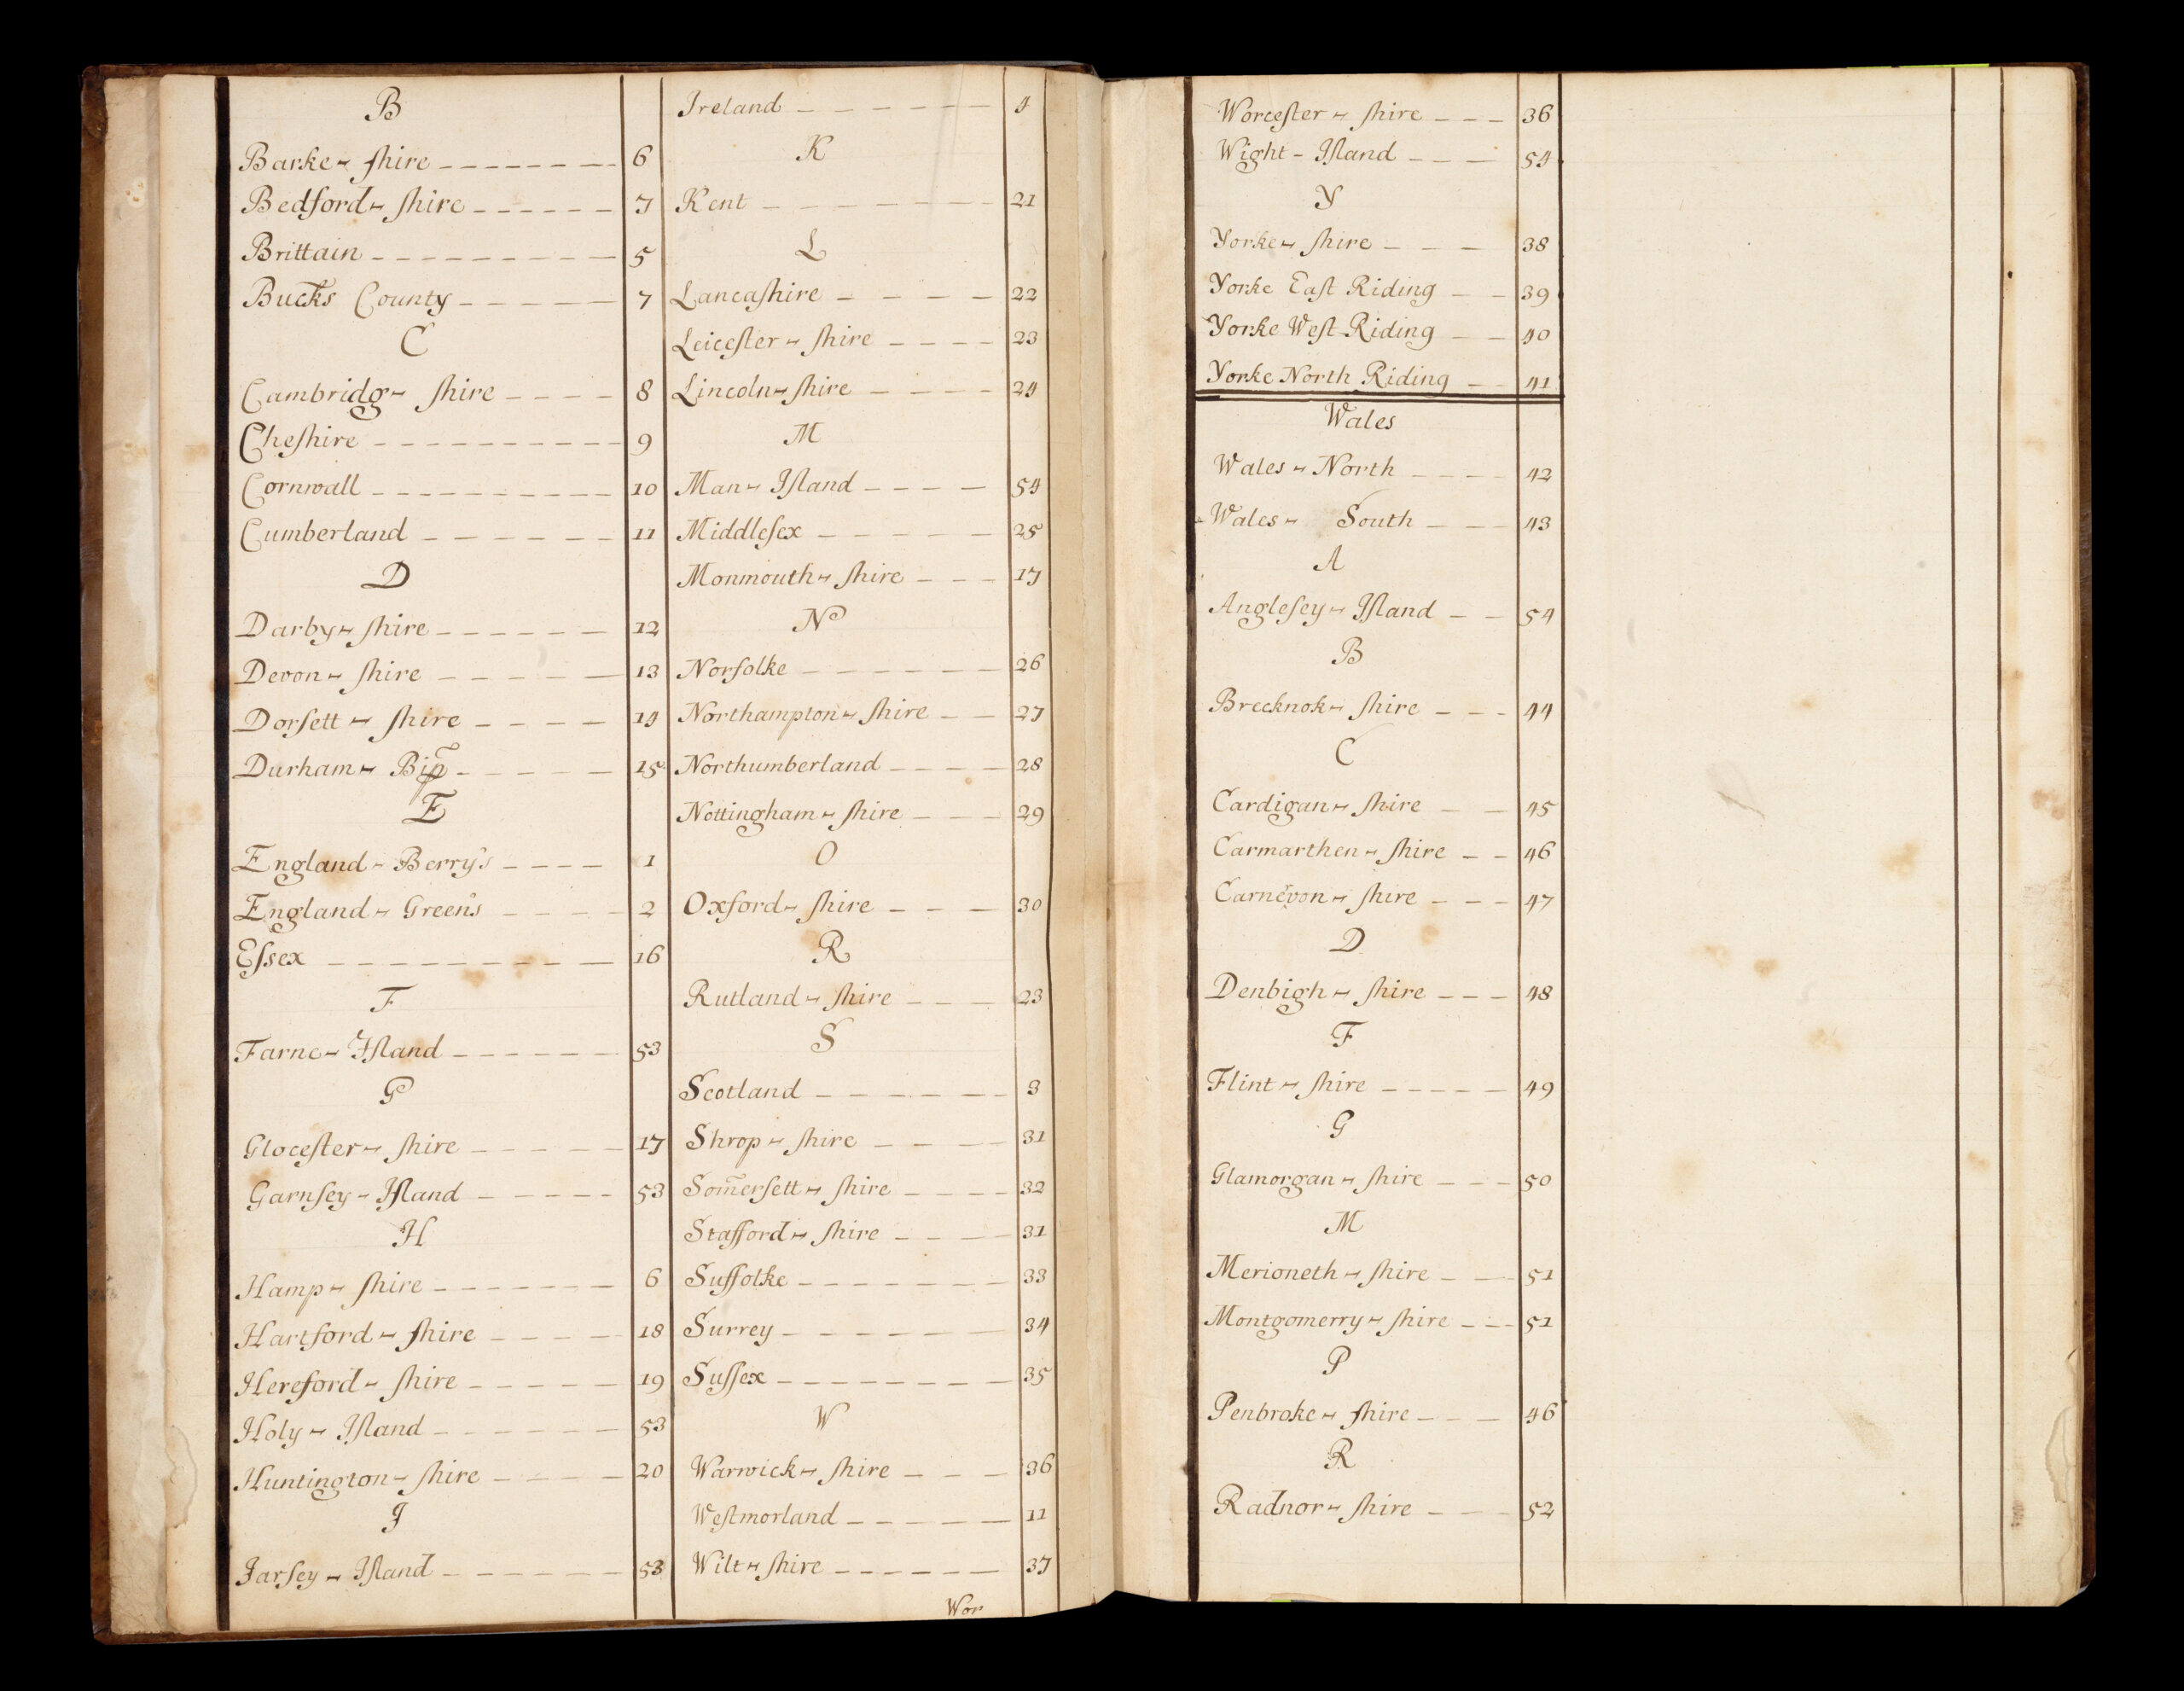 B
Barke - ſhire 6
Bedford - ſhire 7
Brittain 5
Bucks County 7
C
Cambridg - ſhire 8
Cheſhire 9
Cornwall 10
Cumberland 11
D
Darby - ſhire 12
Devon - ſhire 13
Dorſett - ſhire 14
Durham - Bip̃ 15
E
England - Berry's 1
England - Green's 2
Eſsex 16
F
Farne - Iſland 53
G
Gloceſter - ſhire 17
Garnſey - Iſland 53
H
Hamp - ſhire 6
Hartford - ſhire 18
Hereford - ſhire 19
Holy - Iſland 53
Huntington - ſhire 20
J
Jarſey - Iſland 53
Ireland 4
K
Kent 21
L
Lancaſhire 22
Leiceſter - ſhire 23
Lincoln - ſhire 24
M
Man - Iſland 54
Middleſex 25
Monmouth - ſhire 17
N
Norfolke 26
Northampton - ſhire 27
Northumberland 28
Nottingham - ſhire 29
O
Oxford - ſhire 30
R
Rutland - ſhire 23
S
Scotland 3
Shrop - ſhire 31
Som̃erſett - ſhire 32
Stafford - ſhire 31
Suffolke 33
Surrey 34
Suſſex 35
W
Warwick - ſhire 36
Weſtmorland 11
Wilt - ſhire 37
Wor
Worceſter - ſhire 36
Wight - Iſland 54
Y
Yorke - ſhire 38
Yorke Eaſt Riding 39
Yorke Weſt Riding 40
Yorke North Riding 41
Wales
Wales - North 42
Wales - South 43
A
Angleſey - Iſland 54
B
Brecknok - ſhire 44
C
Cardigan - ſhire 45
Carmarthen - ſhire 46
Carnẽvon - ſhire 47
D
Denbigh - ſhire 48
F
Flint - ſhire 49
G
Glamorgan - ſhire 50
M
Merioneth - ſhire 51
Montgomerry - ſhire 51
P
Penbroke - ſhire 46
R
Radnor - ſhire 52